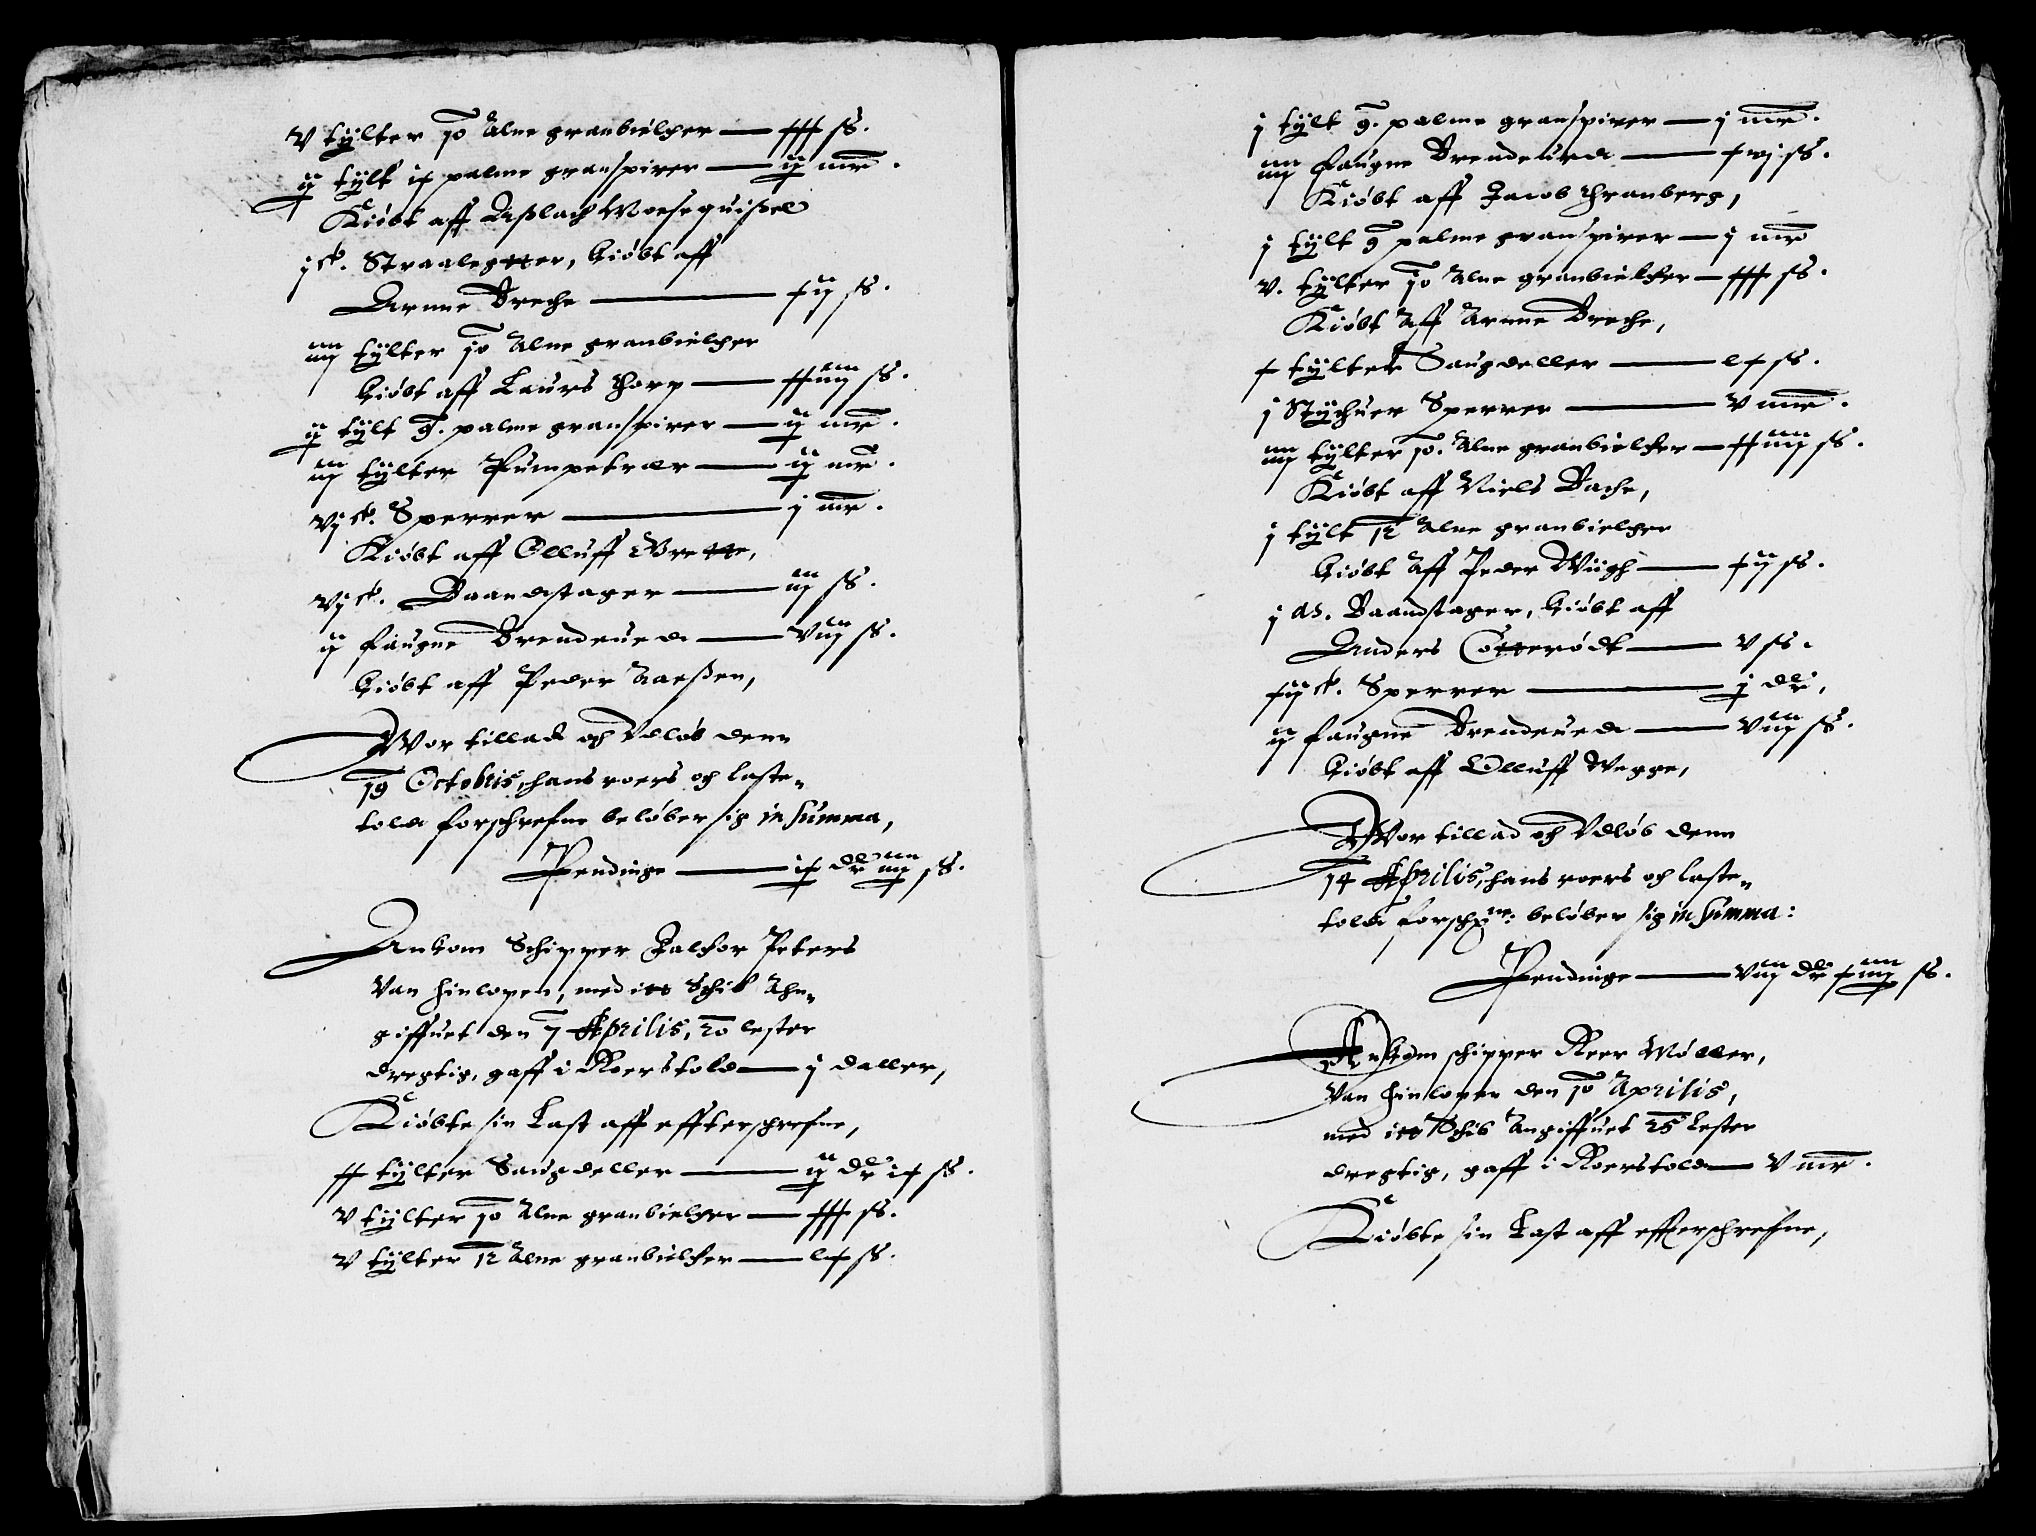 v tylter 10 Alne granbielcher — xxx ss.
ij tylt ix palme granspirer — ij mr.
Kiøbt aff Aßlach Moesequißel
j ck. Straalegtter, kiøbt aff
Arnne Breche — xij ss.
iiij tylter 10 Alne granbielcher
kiøbt aff Laurs Thorp — xxiiij ss.
ij tylt 9. palme granspirer — ij mr.
iij tylter Pumpetrær — ij mr.
vj ck. Sperrer — j mr.
Kiøbt aff Olluff Brette,
vj ck. Baandstager — iij ss.
ij faugne Brendeued — viij ss.
kiøbt aff Peder Aaeßen,
Wor tillad och Vdløb denn
19 Octobris, hans roers och laste-
told forschrefne beløber sig in summa,
Pendinge — ix dlr iiij ss.
Ankom Schipper Falchor Peters
Van hinlopen, med itt Schib Ahn-
giffuet den 7 Aprilis, 20 lester
dregtig, gaff i Roerstold — j daller,
Kiøbte sin Last aff effterschrefne,
xx tylter Saugdeller — ij dr ix ss.
v tylter 10 Alne granbielcher — xxx ss.
v tylter 12 Alne granbielcher — lx ss.
j tylt 9. palme granspirer — j mr.
iiij faugne Brendeued — xvj ss.
Kiøbt aff Jacob Thranberg,
j tylt 9 palme granspirer — j mr
v. tylter 10 Alne granbielcher — xxx ss.
Kiøbt Aff Arnne Breche,
x tylter Saugdeller — lx ss.
j Stychuer Sperrer — v mr.
iiij tylter 10. Alne granbielcher — xxiiij ss.
Kiøbt aff Niels Bache,
j tylt 12 Alne granbielcher
kiøbt Aff Peder Wiigh — xij ss.
j ds. Baandstager, kiøbt aff
Anders Cotterødt — v ss.
xij ck. Sperrer — j dlr,
ij faugne Brendeued — viij ss.
kiøbt aff Olluff Wegge,
Wor tillad och Vdløb denn
14 Aprilis, hans roers och laste-
told forschne: beløber sig in summa:
Pendinge — viij dlr xiiij ss.
Ankom schipper Reer Møller,
Van hinloper den 10 Aprilis,
med itt Schib Angiffuet 25 Lester
dregtig, gaff i Roerstold — v mr.
Kiøbte sin Last aff effterschrefne,